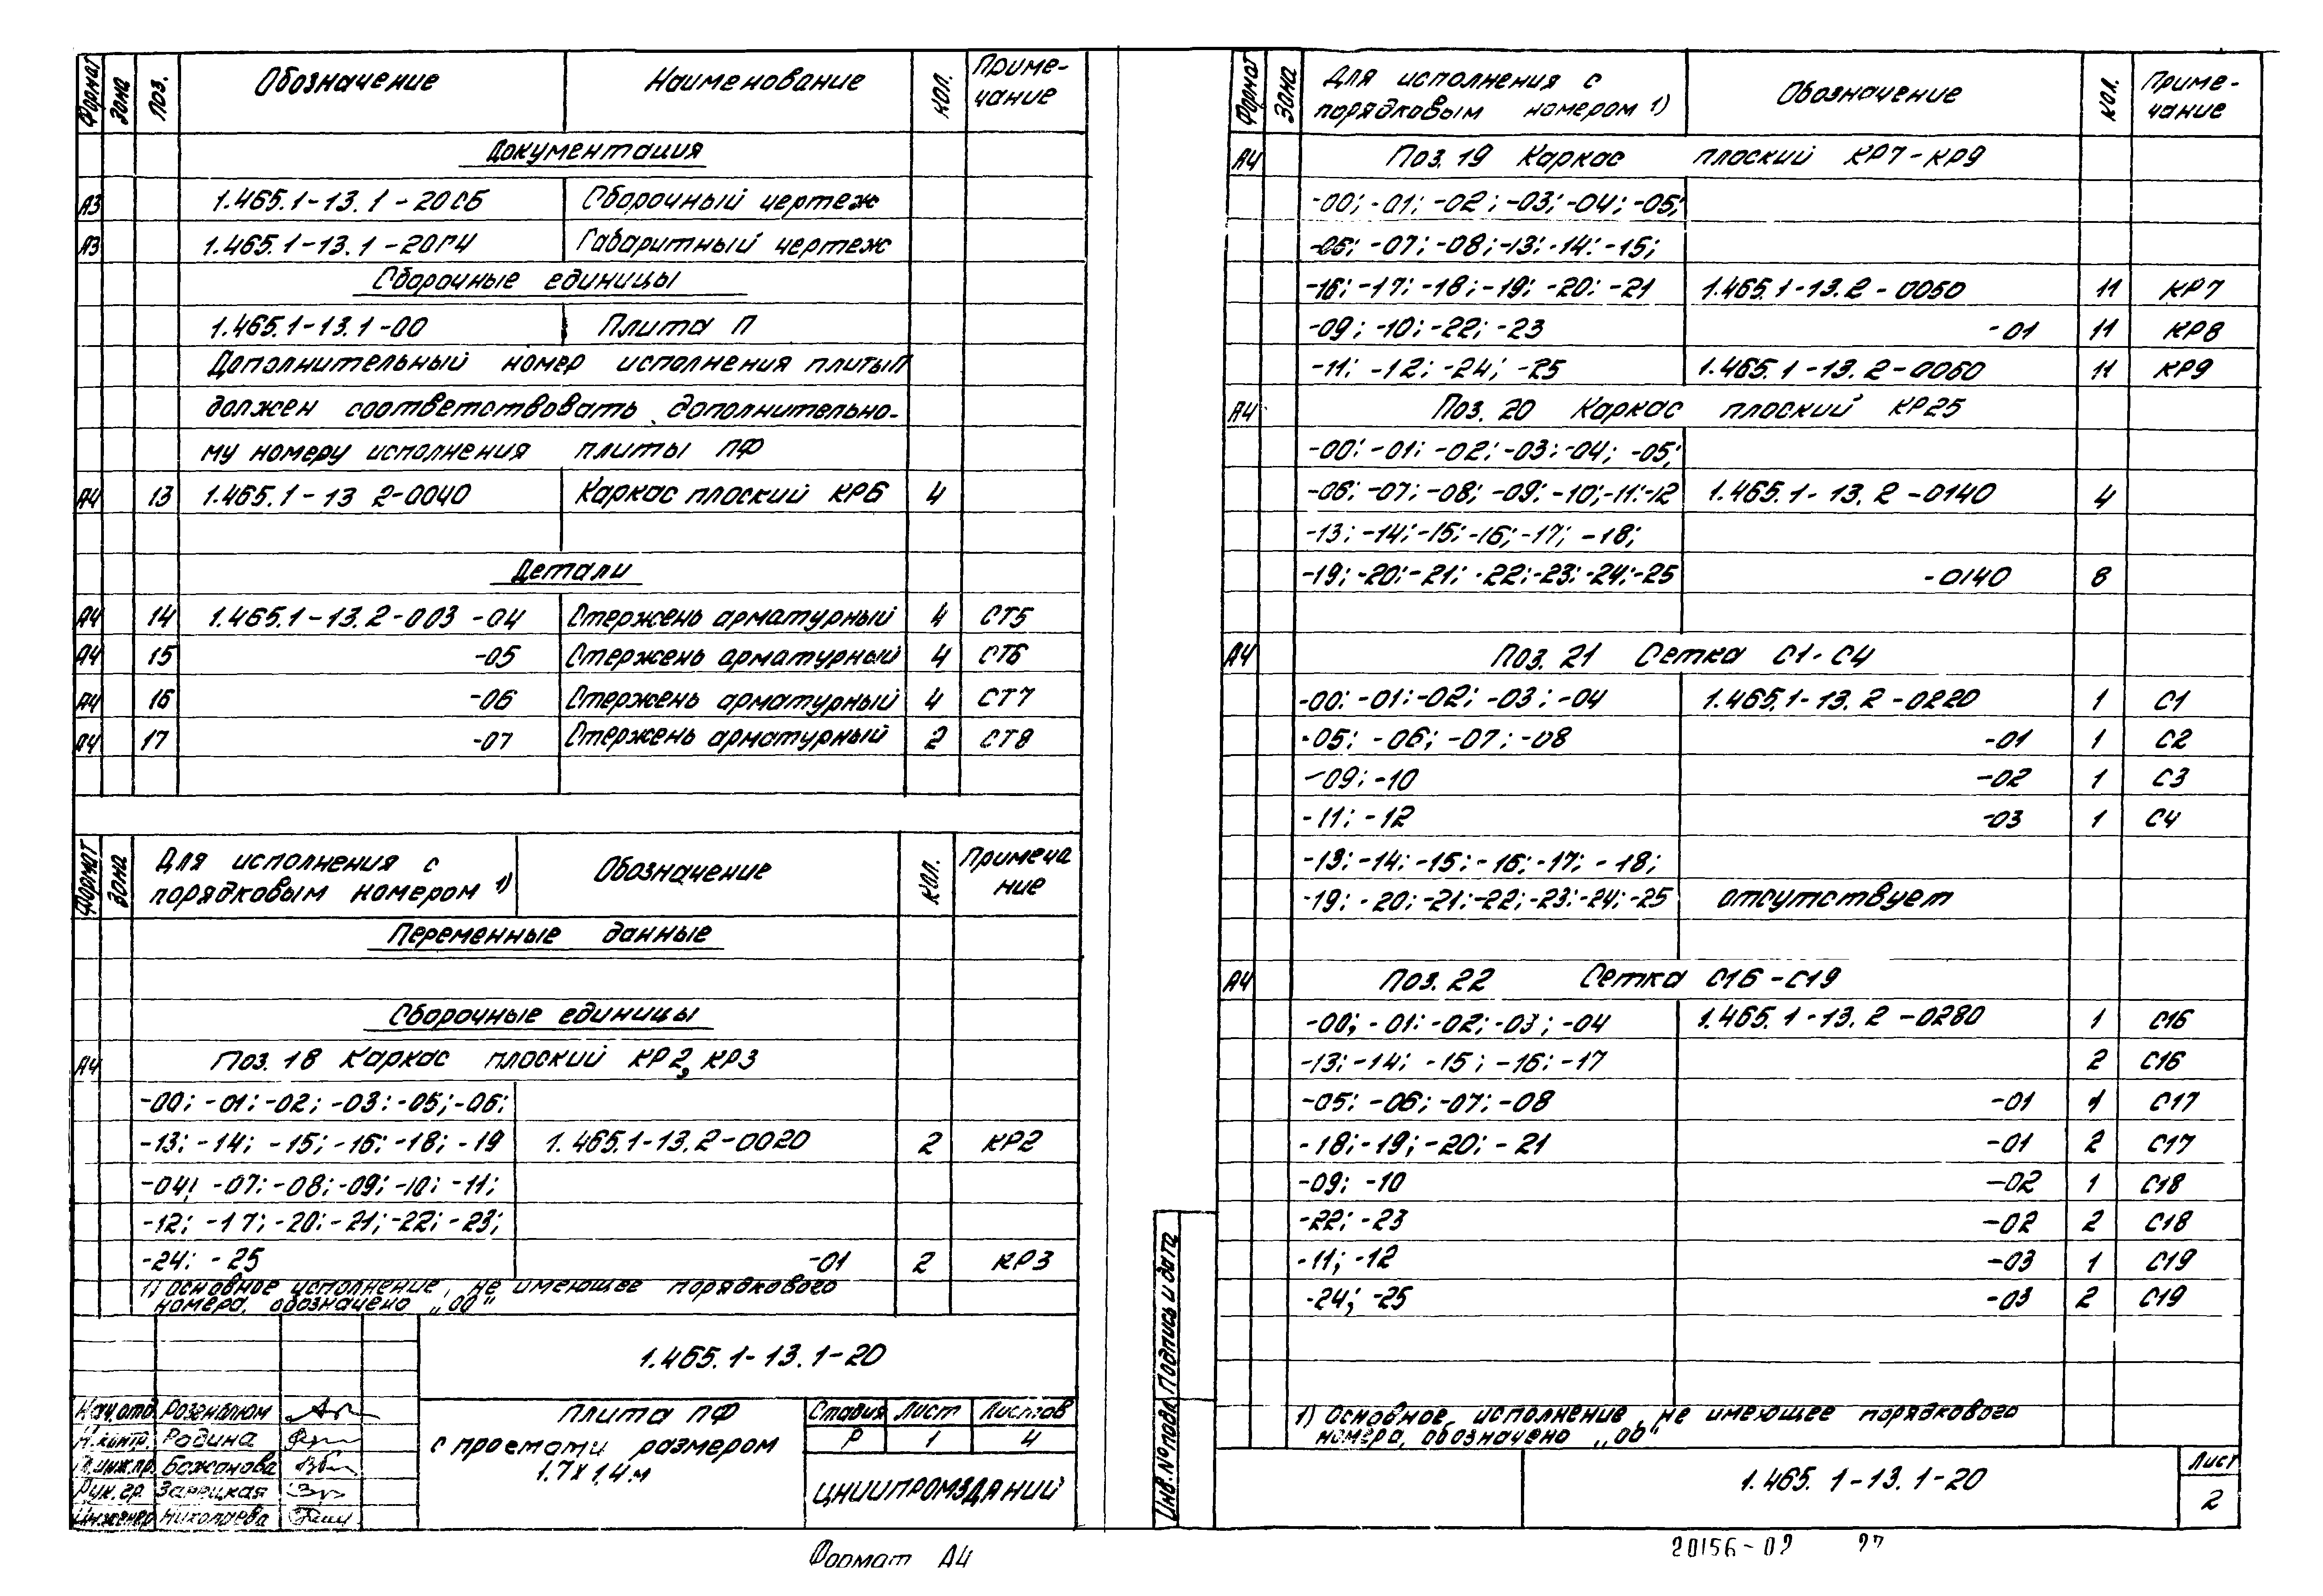 Формат Зона Поз. Обозначение Наименование Кол. Приме-
чание
Документация
А3 1.465.1-13.1-20СБ Сборочный чертеж
А3 1.465.1-13.1-20ГЧ Габаритный чертеж
Сборочные единицы
1.465.1-13.1-00 Плита П
Дополнительный номер исполнения плиты П
должен соответствовать дополнительно-
му номеру исполнения плиты ПФ
А4 13 1.465.1-13 2-0040 Каркас плоский КР6 4
Детали
А4 14 1.465.1-13.2-003 -04 Стержень арматурный 4 СТ5
А4 15 -05 Стержень арматурный 4 СТ6
А4 16 -06 Стержень арматурный 4 СТ7
А4 17 -07 Стержень арматурный 2 СТ8
Формат Зона Для исполнения с
порядковым номером 1) Обозначение Кол. Примеча
ние
Переменные данные
Сборочные единицы
А4 Поз. 18 Каркас плоский КР2, КР3
-00; -01; -02; -03; -05; -06;
-13; -14; -15; -16; -18; -19 1.465.1-13.2-0020 2 КР2
-04; -07; -08; -09; -10; -11;
-12; -17; -20; -21; -22; -23;
-24; -25 -01 2 КР3
1) Основное исполнение, не имеющее порядкового
номера, обозначено „00"
1.465.1-13.1-20
Нач.отд. Розенблюм
Н.контр. Родина
Гл.инж.пр. Бажанова
Рук.гр. Зарецкая
Инженер Николаева
Плита ПФ
с проемами размером
1.7х1,4м
Стадия Лист Листов
Р 1 4
ЦНИИПРОМЗДАНИЙ
Формат А4
Формат Зона Для исполнения с
порядковым номером 1) Обозначение Кол. Приме-
чание
А4 Поз. 19 Каркас плоский КР7-КР9
-00; -01; -02; -03; -04; -05;
-06; -07; -08; -13; -14; -15;
-16; -17; -18; -19; -20; -21 1.465.1-13.2-0050 11 КР7
-09; -10; -22; -23 -01 11 КР8
-11; -12; -24; -25 1.465.1-13.2-0060 11 КР9
А4 Поз. 20 Каркас плоский КР25
-00; -01; -02; -03; -04; -05;
-06; -07; -08; -09; -10; -11; -12 1.465.1-13.2-0140 4
-13; -14; -15; -16; -17; -18;
-19; -20; -21; -22; -23; -24; -25 -0140 8
А4 Поз. 21 Сетка С1-С4
-00; -01; -02; -03; -04 1.465.1-13.2-0220 1 С1
-05; -06; -07; -08 -01 1 С2
-09; -10 -02 1 С3
-11; -12 -03 1 С4
-13; -14; -15; -16; -17; -18;
-19; -20; -21; -22; -23; -24; -25 отсутствует
А4 Поз. 22 Сетка С16-С19
-00; -01; -02; -03; -04 1.465.1-13.2-0280 1 С16
-13; -14; -15; -16; -17 2 С16
-05; -06; -07; -08 -01 1 С17
-18; -19; -20; -21 -01 2 С17
-09; -10 -02 1 С18
-22; -23 -02 2 С18
-11; -12 -03 1 С19
-24; -25 -03 2 С19
1) Основное исполнение, не имеющее порядкового
номера, обозначено „00"
Инв.№подл. Подпись и дата
1.465.1-13.1-20 Лист
2
20156-02 27